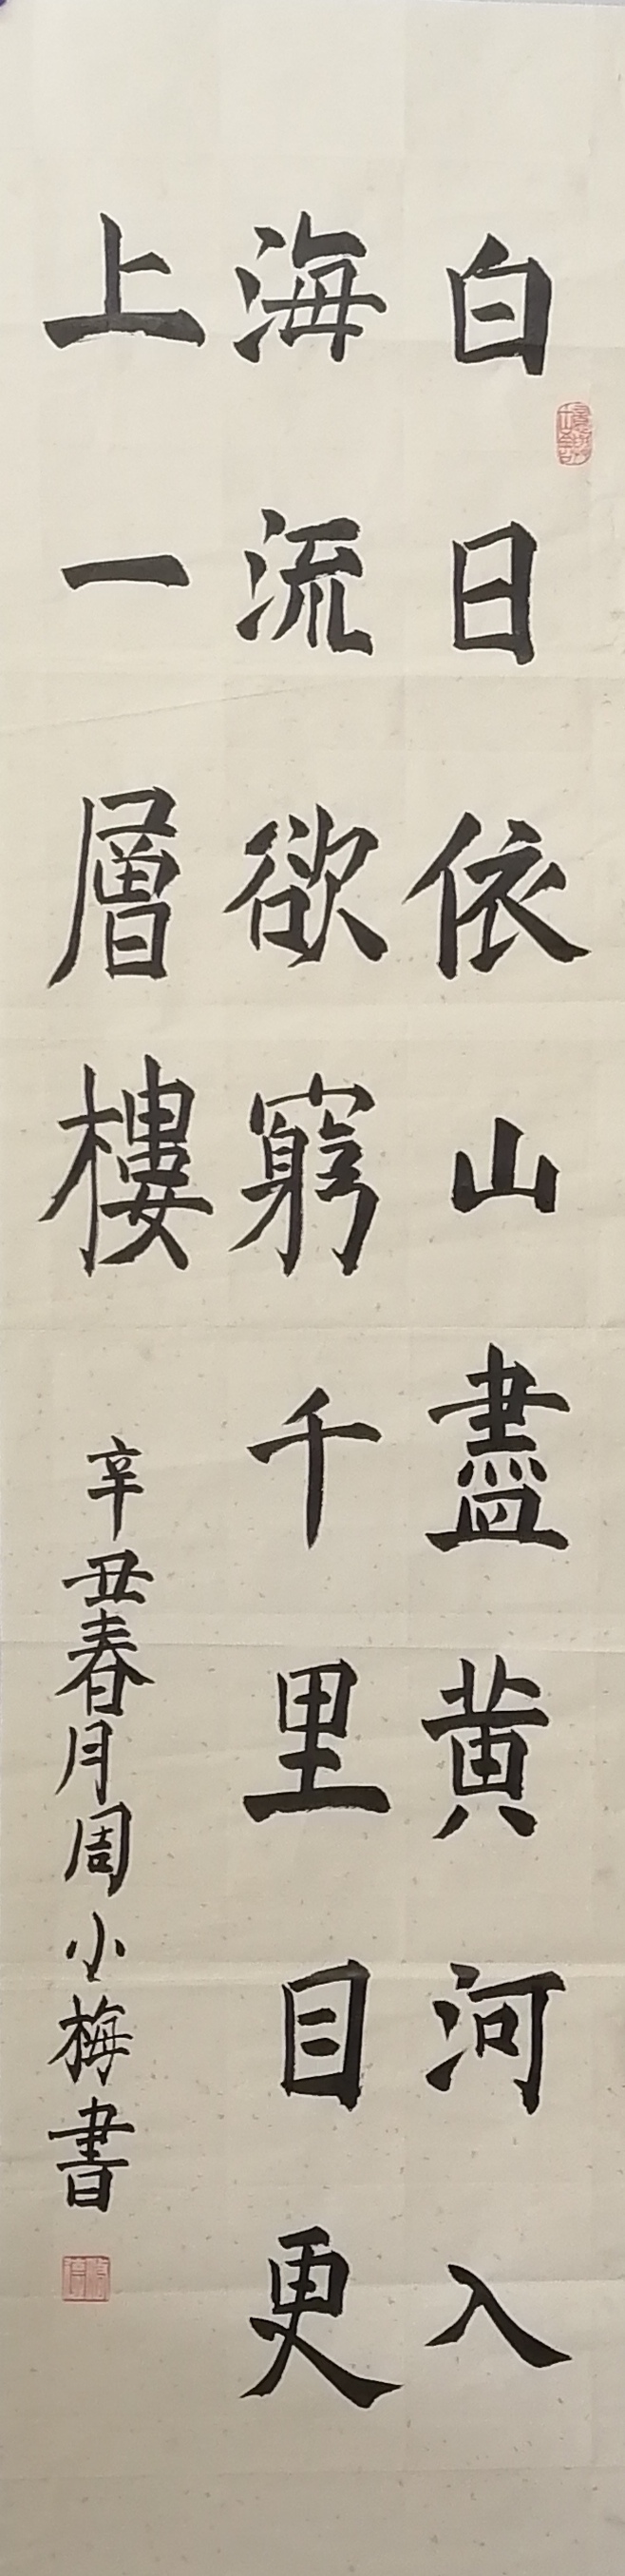 白日依山盡黄河入
海流欲窮千里目更
上一層樓
辛丑春月周小梅書